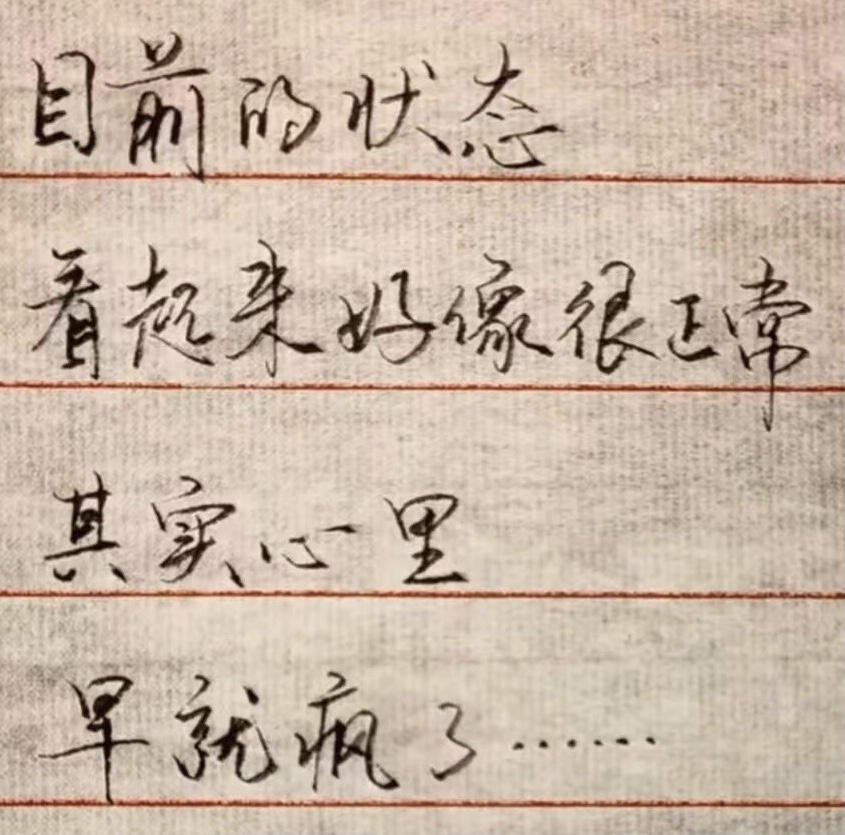 目前的状态
看起来好像很正常
其实心里
早就疯了……